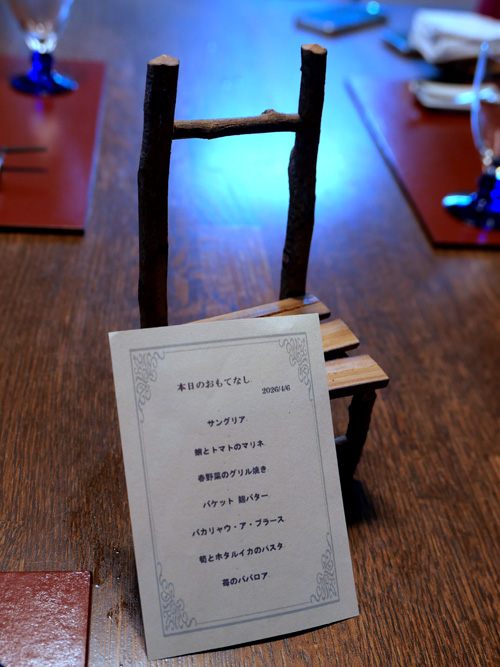 本日のおもてなし
2026/4/6
サングリア
蛸とトマトのマリネ
春野菜のグリル焼き
バケット バター
バカリャウ・ア・ブラース
筍とホタルイカのパスタ
苺のババロア